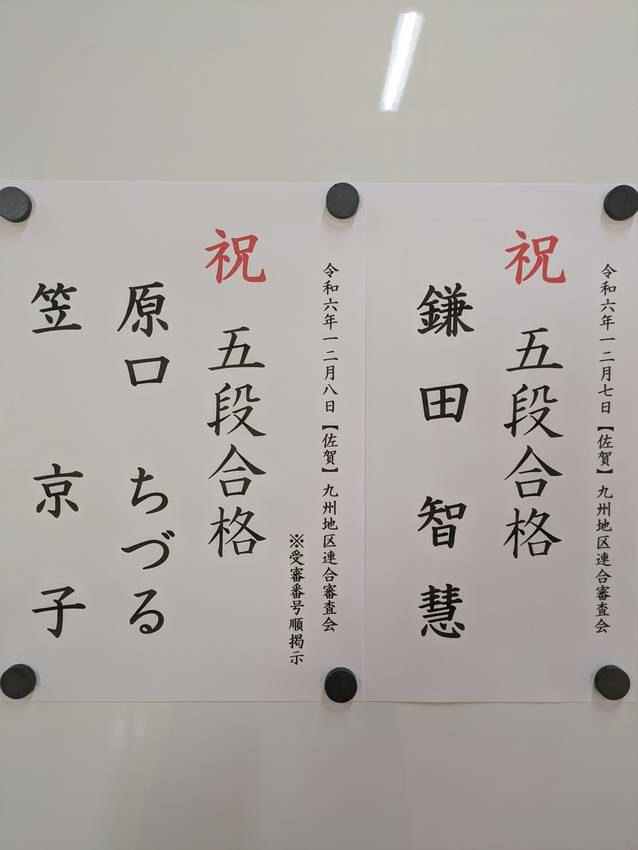 令和六年一二月七日【佐賀】九州地区連合審査会
祝 五段合格
鎌田智慧
令和六年一二月八日【佐賀】九州地区連合審査会
※受審番号順掲示
祝 五段合格
原口 ちづる
笠 京子